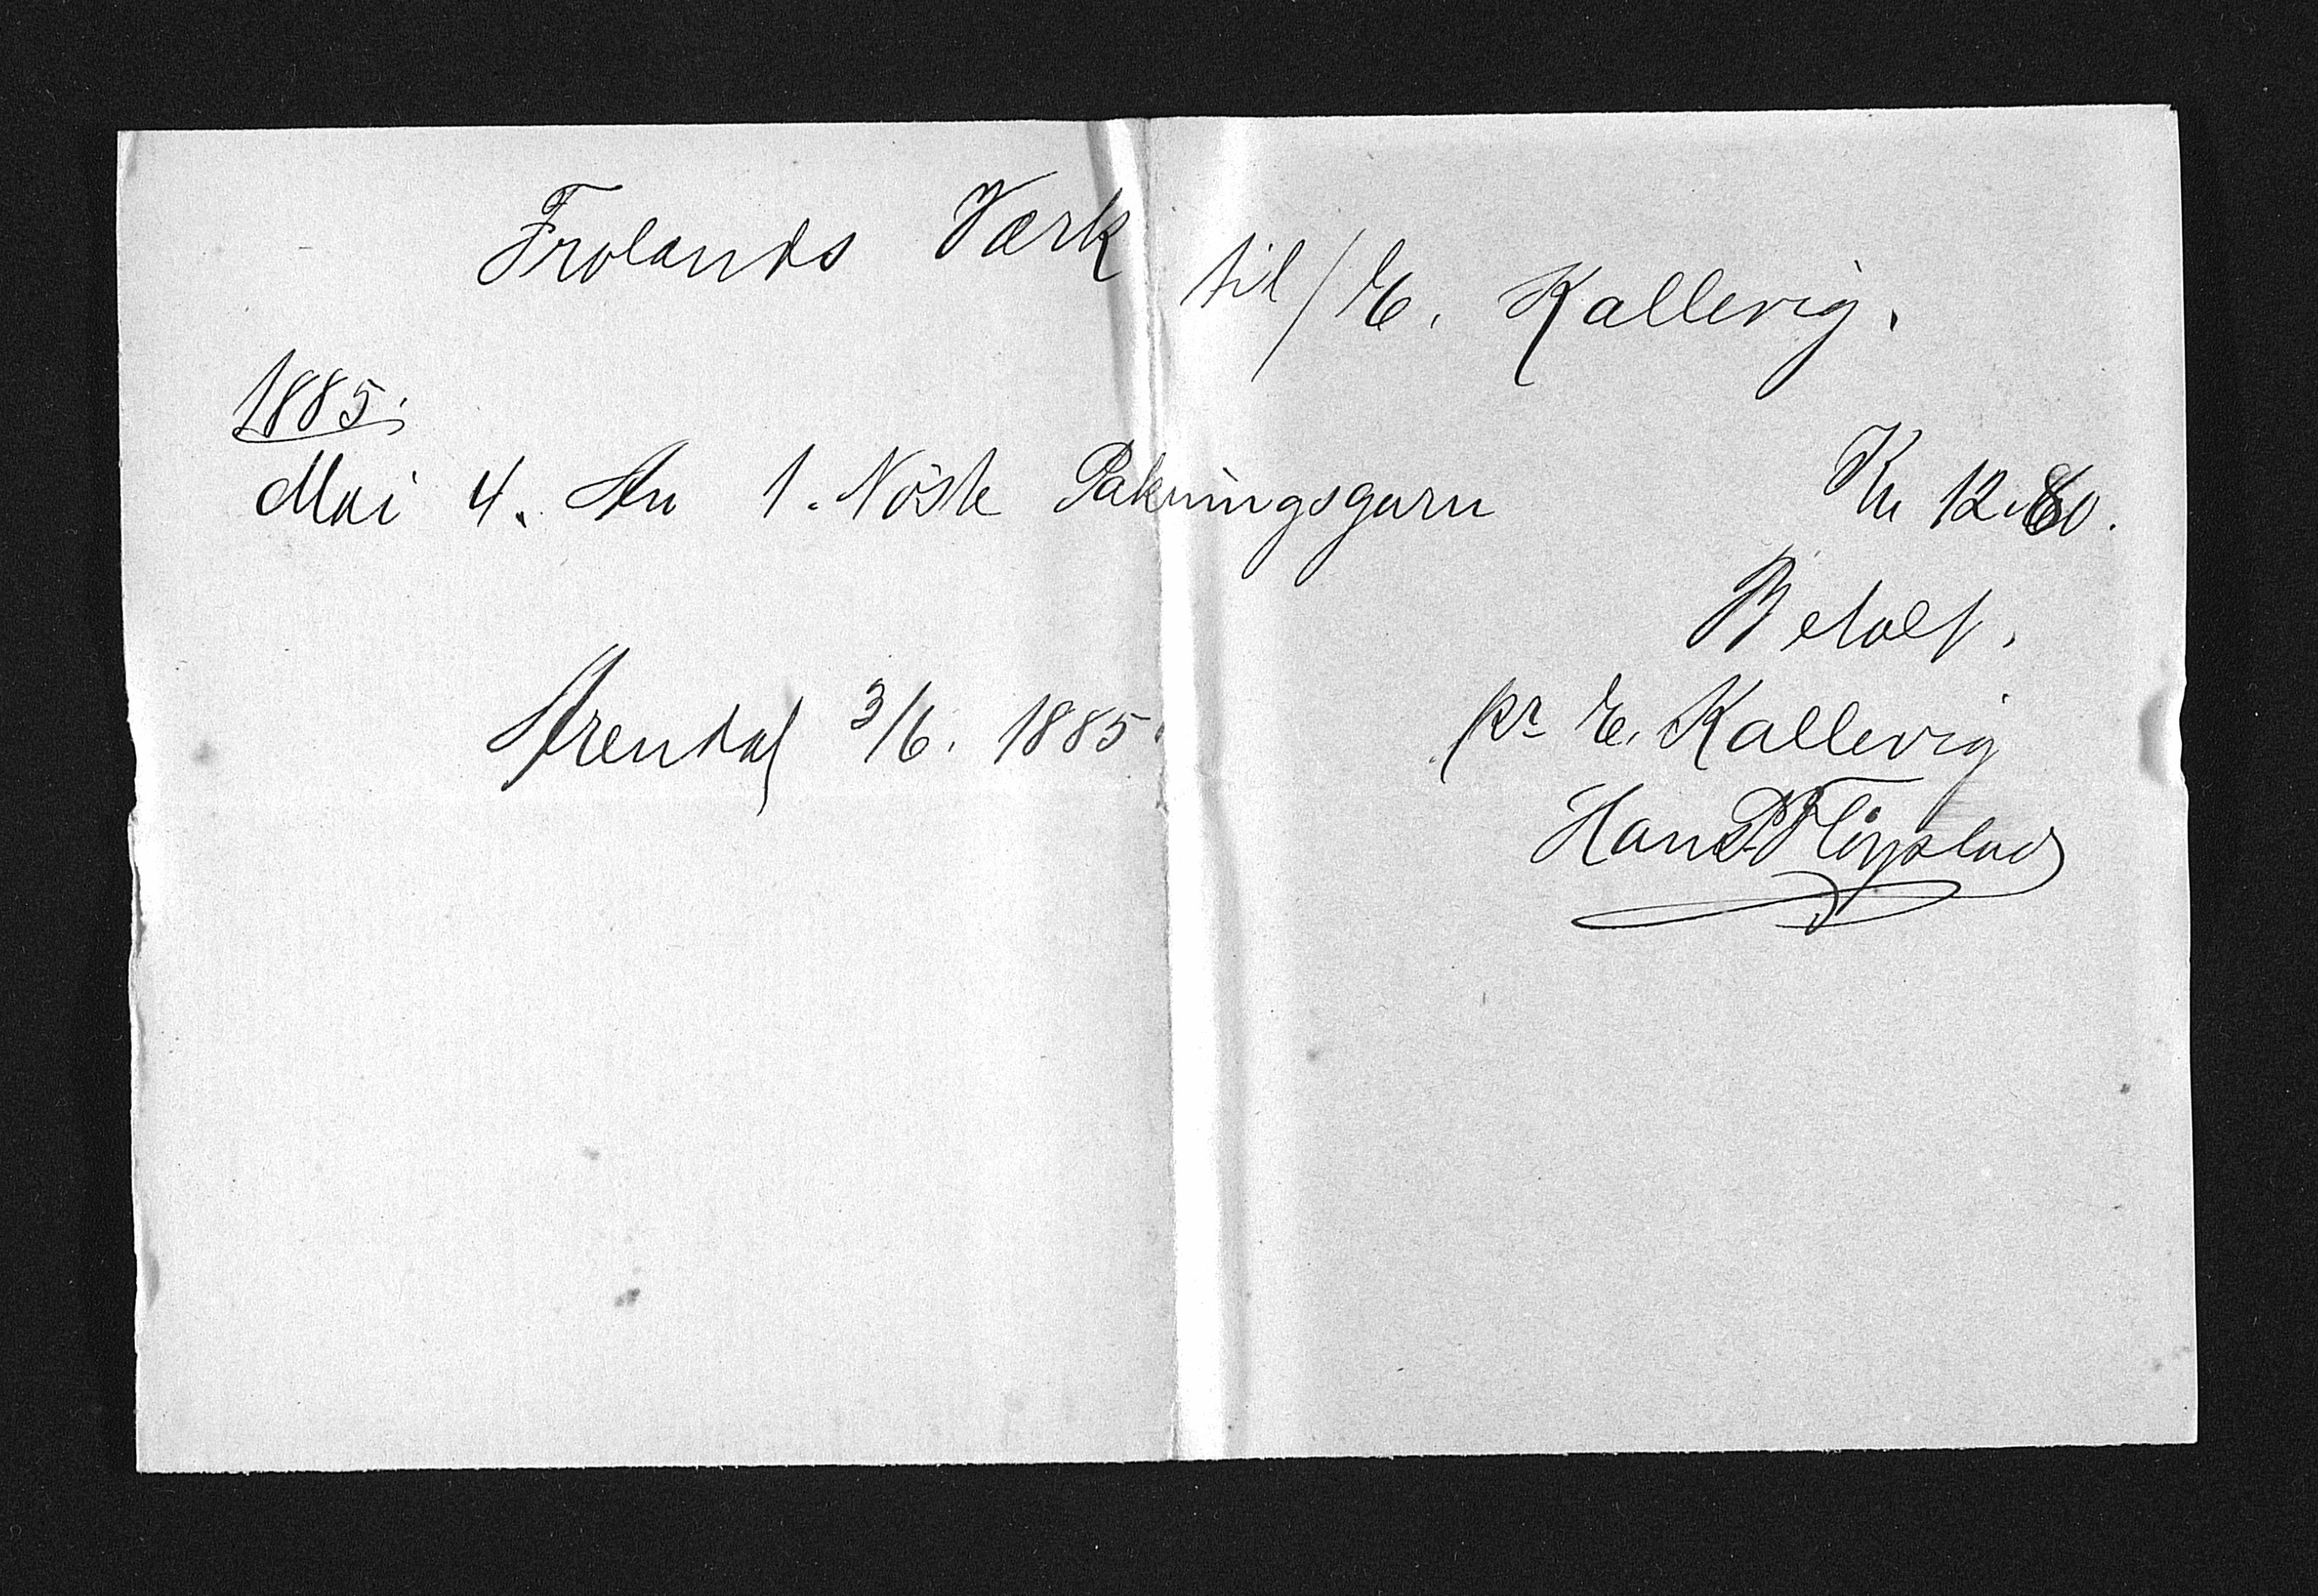 Frolands Værk til / E. Kallevig.
1885.
Mai 4. An 1. Nöste Pakningsgarn Kr 12.60.
Betalt.
Arendal 3/6. 1885. pr E. Kallevig
Hans P. Fløystad